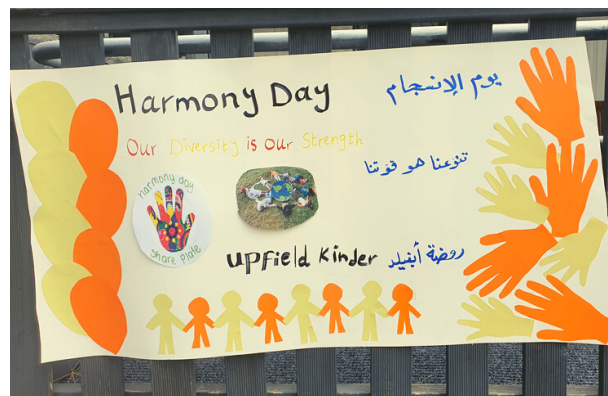 Harmony Day
يوم الإنسجام
Our Diversity is Our Strength
تنوعنا هو قوتنا
harmony day
share plate
upfield Kinder
روضة أبفيلد